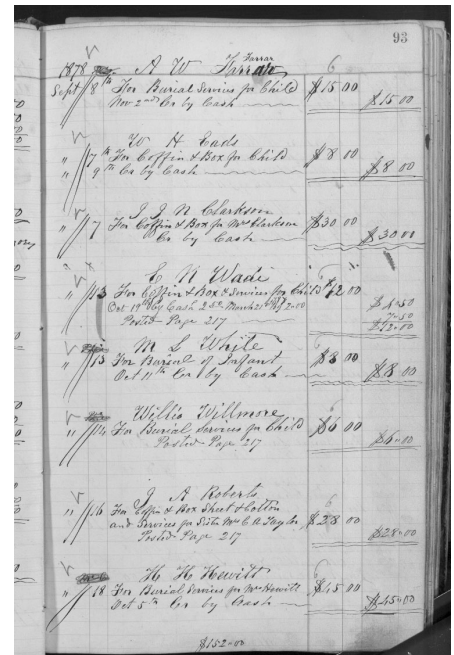 93
1878 A W Farrar Farrar 6
Sept 8th For Burial Services for Child $15 00
Nov 2nd Cr by Cash $15-00
W H Eads
" 7th For Coffin & Box for Child $8 00
" 9th Cr by Cash $8 00
J J N Clarkson
" 7 For Coffin & Box for Mrs Clarkson $30 00
Cr by Cash $30 00
E N Wade
" 13 For Coffin & Box & Services for Child $12 00
Oct 19th By Cash
Posted Page 217
M L White
" 13 For Burial of Infant $8 00
Oct 11th Cr by Cash $8 00
Willis Willmore 6
" 14 For Burial Services for Child $6 00
Posted Page 217 $6-00
J A Roberts 6
" 16 For Coffin & Box Sheet & Cotton
and Services for Sister Mrs C A Taylor $28 00
Posted Page 217 $28-00
H H Hewitt 6
" 18 For Burial Services for Mr Hewitt $45 00
Oct 5th Cr by Cash $45-00
$152-00